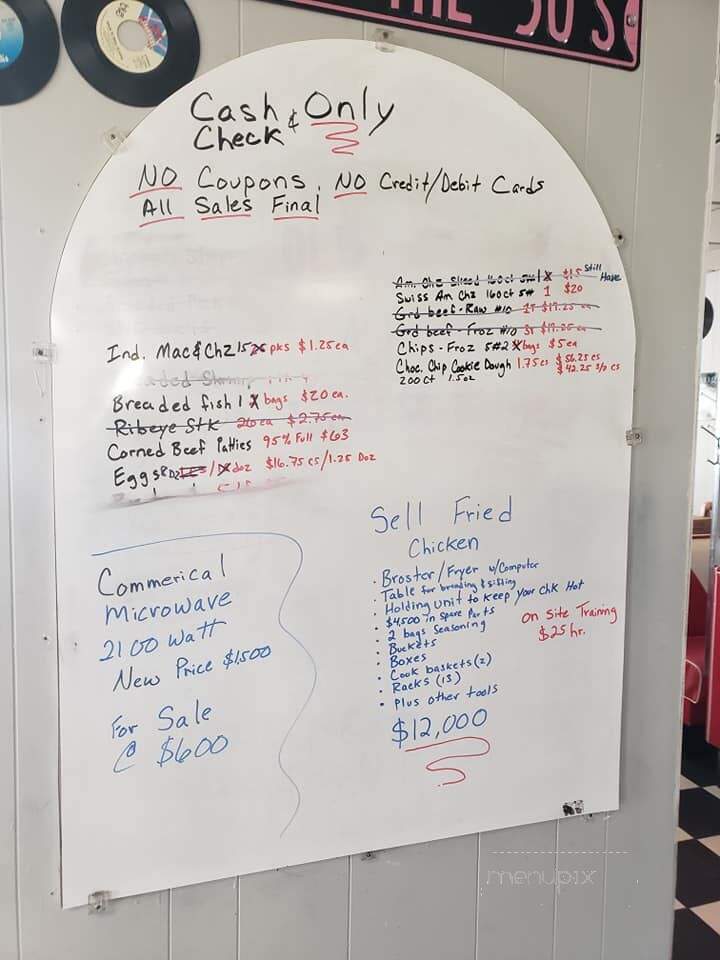 THE 50'S
Cash & Only
Check
NO Coupons, NO Credit/Debit Cards
All Sales Final
Am. Chz Sliced 160ct 5# 1 X $15 Still Have
Swiss Am Chz 160ct 5# 1 $20
Grd beef - Raw #10 $17.25 ea
Grd beef - Froz #10 $17.25 ea
Chips - Froz 5# 2 X bags $5 ea
Choc. Chip Cookie Dough 1.75 cs $56.25 cs
200 ct 1.5oz $42.25 3/4 cs
Ind. Mac & Chz 15 pks $1.25 ea
Breaded fish 1 X bags $20 ea.
Ribeye Stk 26 ea $2.75 ea
Corned Beef Patties 95% Full $63
Eggs 8 Dz doz $16.75 cs/1.25 Doz
Commerical
Microwave
2100 watt
New Price $1,500
For Sale
@ $600
Sell Fried
Chicken
• Broster/Fryer w/Computer
• Table for breading & sifting
• Holding unit to keep your chk Hot
• $4,500 in Spare Parts
• 2 bags Seasoning
• Buckets
• Boxes
• Cook baskets (2)
• Racks (13)
• Plus other tools
$12,000
on Site Training
$25 hr.
menupix